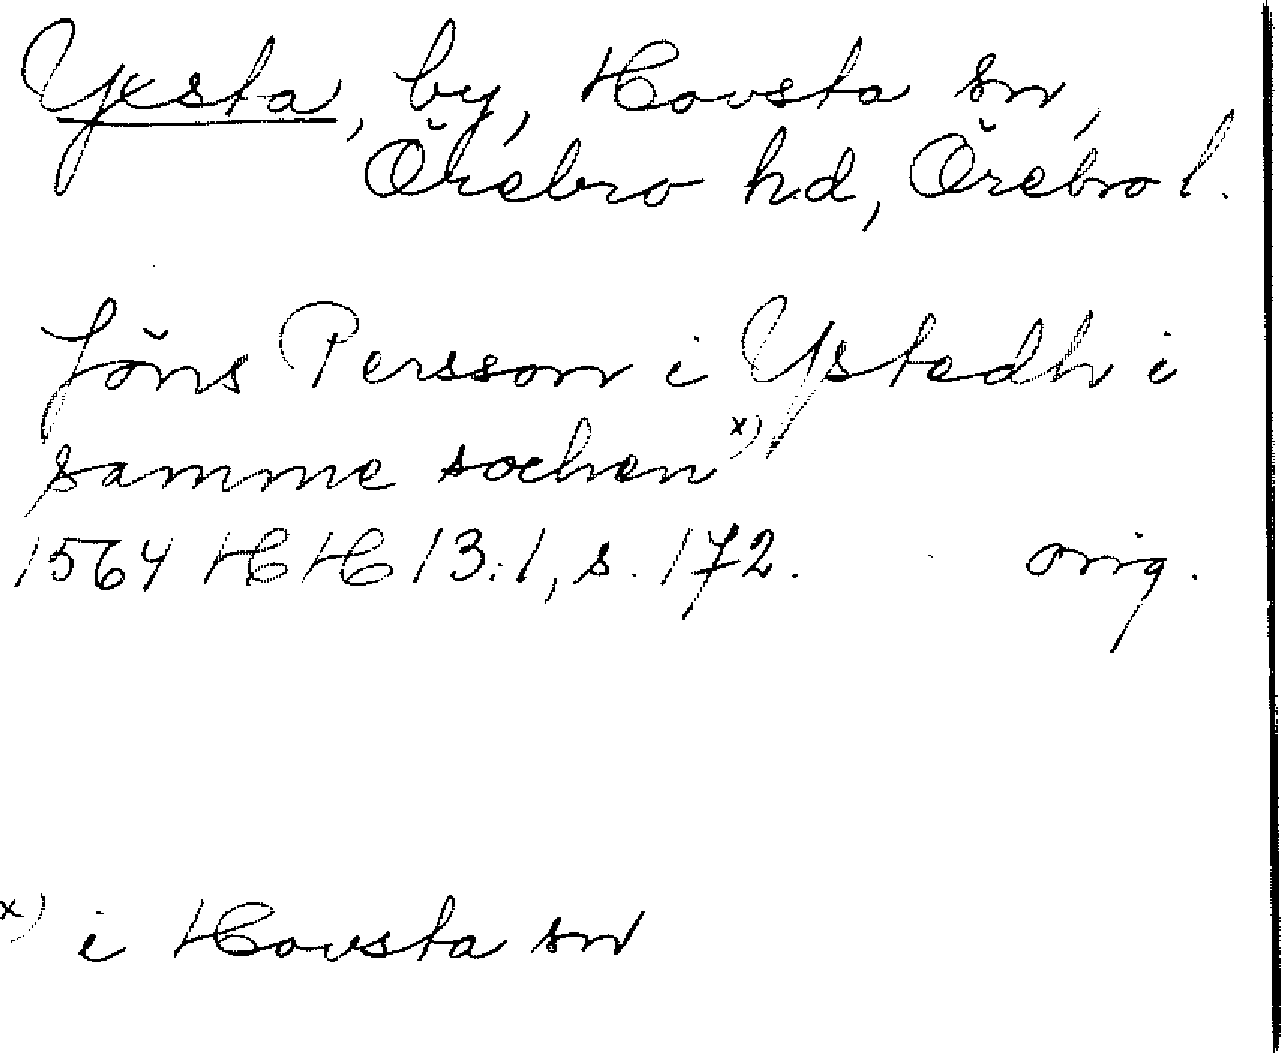 Yxsta, by, Hovsta sn,
Örebro hd, Örebro l.
Jöns Persson i Ystedh i
samme sochen x)
1564 HH 13:1, s. 172. orig.
x) i Hovsta sn